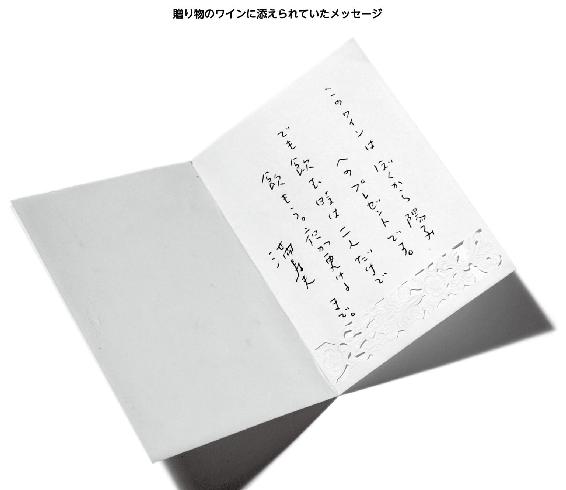 贈り物のワインに添えられていたメッセージ
このワインは ぼくから 陽子
へのプレゼントです。
でも 飲む 時は 二人 だけで
飲もう。夜が更けるまで。
満寿夫